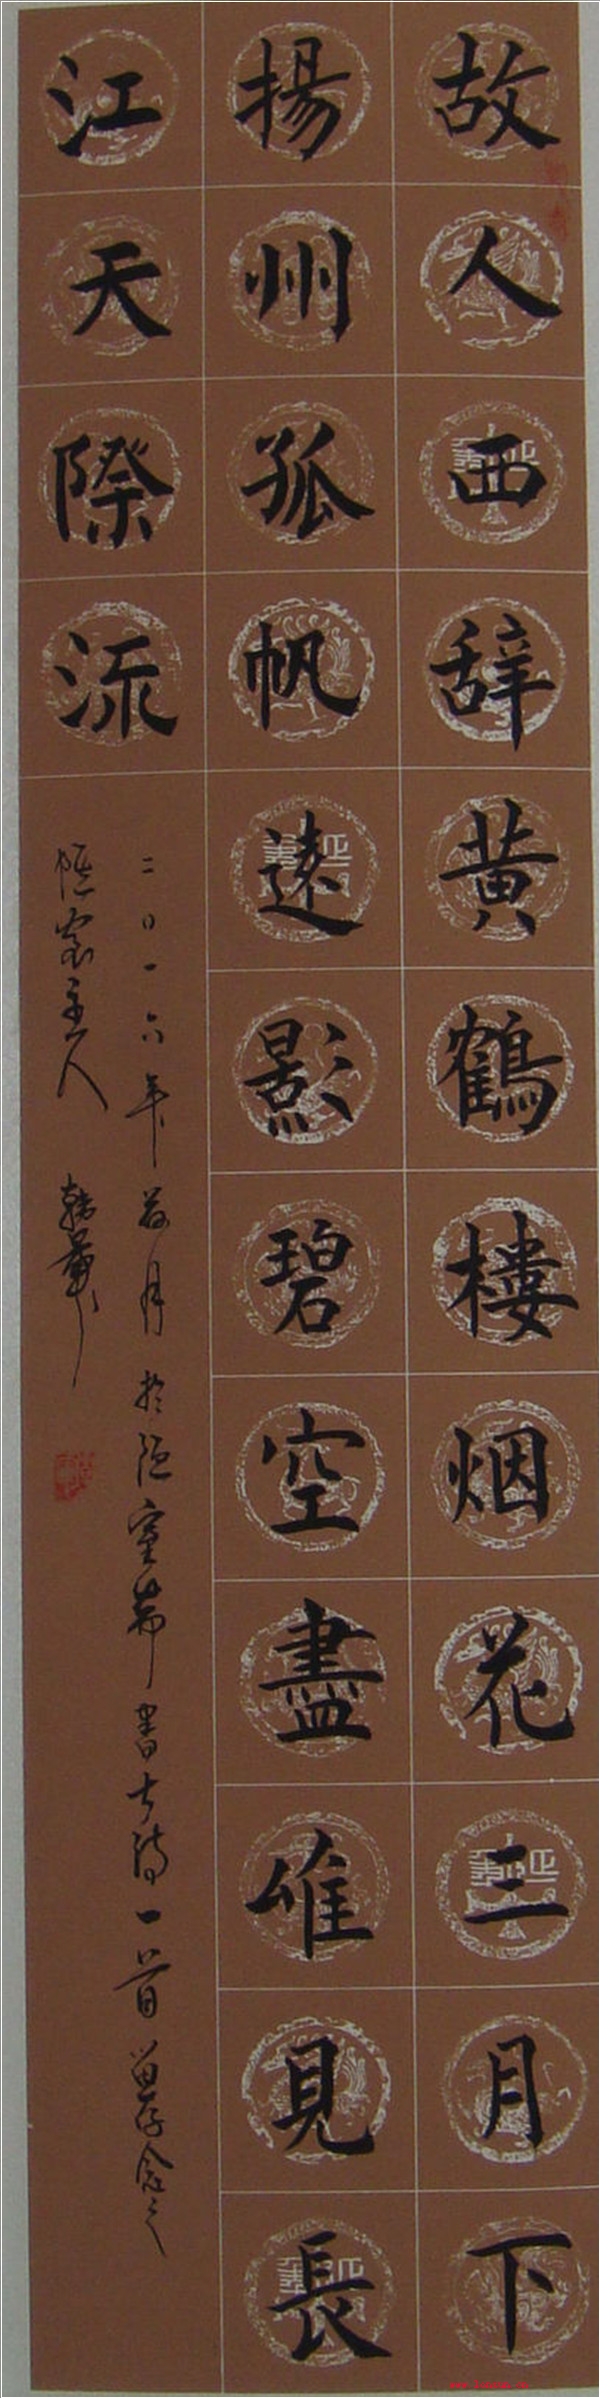 故人西辞黄鹤楼烟花三月下
揚州孤帆遠影碧空盡唯見長
江天際流
二〇一六年荷月於陋室幕書古诗一首留存念之
主人